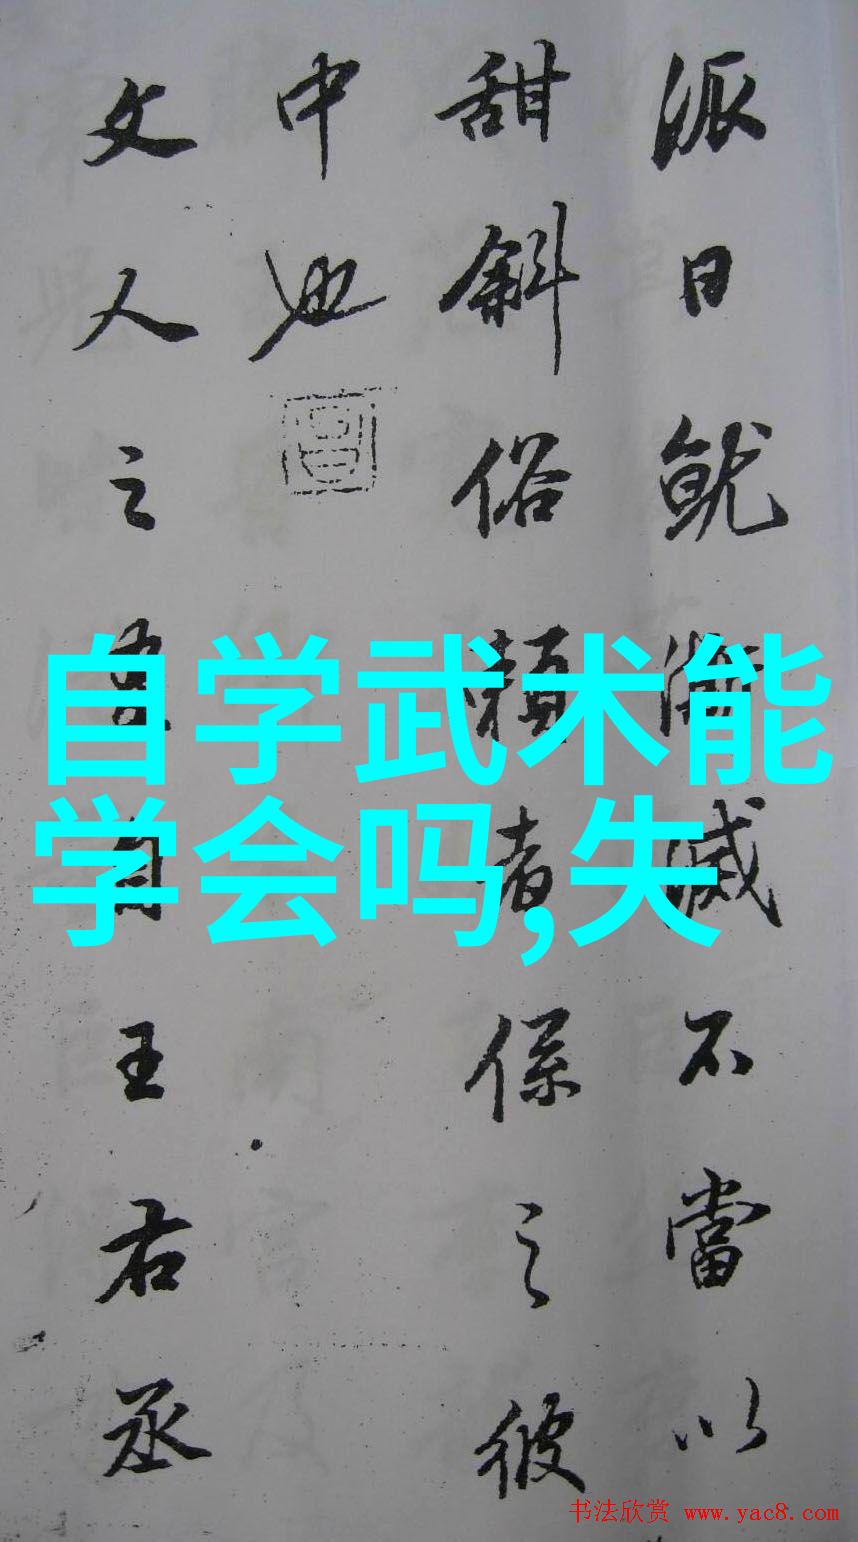 派日就澌滅不當以
甜斜俗賴者係之彼
中也
文人之畫自王右丞
自学武术能
学会吗,失
书法欣赏 www.yac8.com